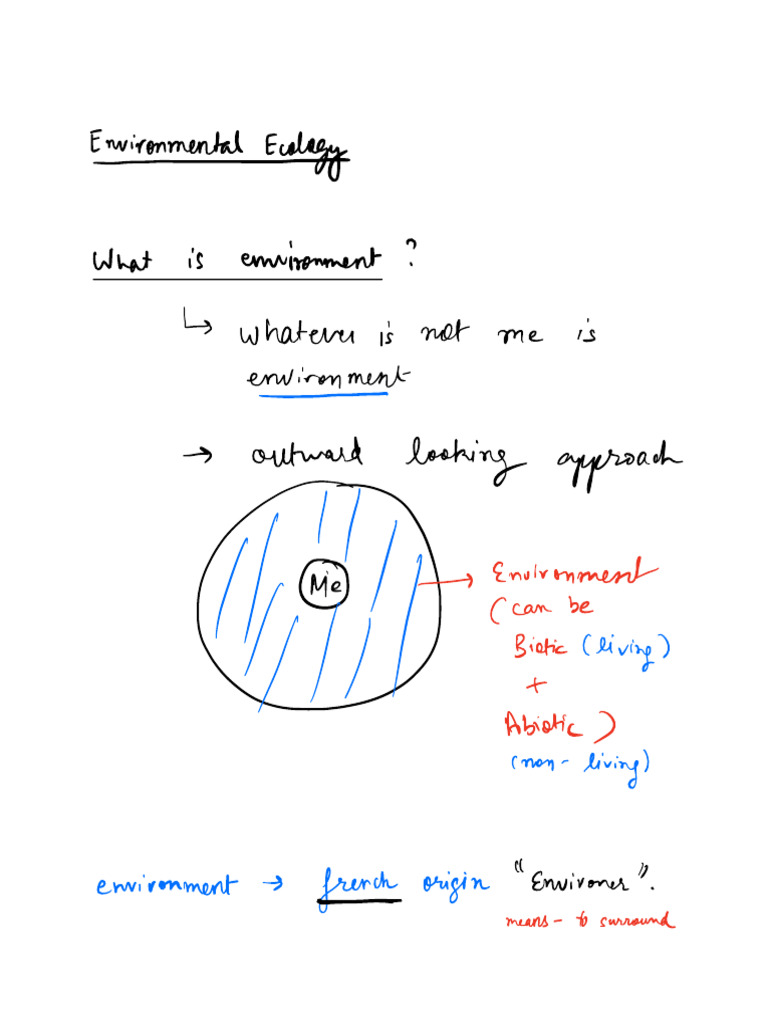 Environmental Ecology
What is environment ?
↳ Whatever is not me is
environment
→ outward looking approach
Me
→ Environment
(can be
Biotic (living)
+
Abiotic)
(non-living)
environment → french origin "Environer".
means - to surround